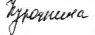 Курочкина